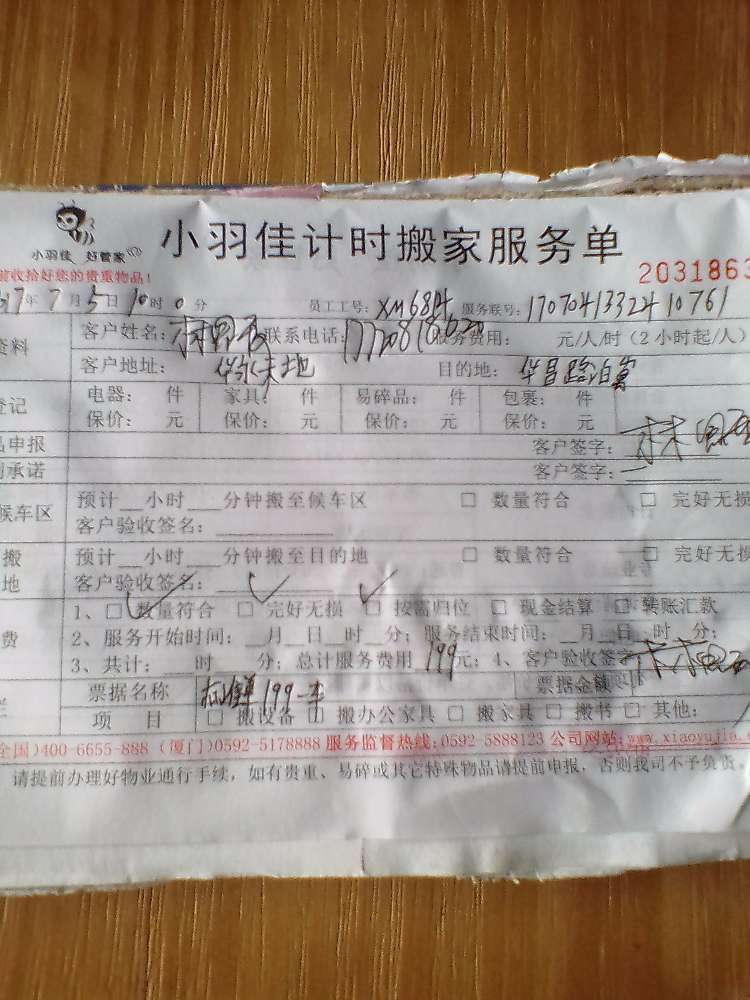 小羽佳 好管家
小羽佳计时搬家服务单
前收拾好您的贵重物品！
2031863
17年7月5日10时0分 员工工号： 服务联号：1707041332410761
资料 客户姓名： 联系电话： 服务费用： 元/人/时（2小时起/人）
客户地址： 目的地：
登记 电器： 件 家具： 件 易碎品： 件 包裹： 件
保价： 元 保价： 元 保价： 元 保价： 元
品申报 客户签字：
承诺 客户签字：
候车区 预计__小时___分钟搬至候车区 □ 数量符合 □ 完好无损
客户验收签名：
搬 预计__小时___分钟搬至目的地 □ 数量符合 □ 完好无损
地 客户验收签名：
1、□ 数量符合 □ 完好无损 □ 按需归位 □ 现金结算 □ 转账汇款
费 2、服务开始时间：__月__日__时__分；服务结束时间：__月__日__时__分；
3、共计：___时___分；总计服务费用 199元；4、客户验收签字
票据名称 199 票据金额
项 目 □ 搬设备 □ 搬办公家具 □ 搬家具 □ 搬书 □ 其他：
全国)400-6655-888 (厦门)0592-5178888 服务监督热线:0592-5888123 公司网站:www.xiaoyujia.
请提前办理好物业通行手续，如有贵重、易碎或其它特殊物品请提前申报，否则我司不予负责。